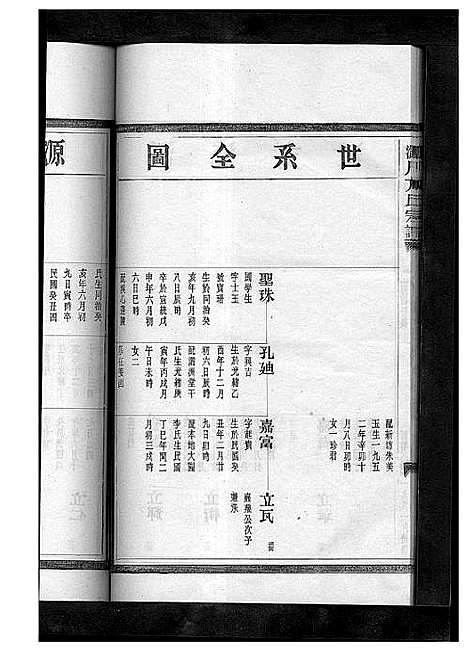 世系全圖
源
氏宗譜
配新塘朱美
玉生一九五
二年辛卯十
月八日卯時
女一珍君
聖珠
國學生
字士玉
號寶珊
生於同治癸
亥年九月初
八日辰時
卒於宣統戊
申年六月初
六日巳時
孔廸
字興吉
生於光緒乙
酉年十二月
初六日辰時
配泗洲堂干
氏生光緒庚
寅年丙戌月
午日未時
女二
嘉富
字能貴
生於民國癸
丑年二月廿
九日卯時
配本地大園
李氏生民國
丁巳年閏二
月初三戌時
立瓦
嘉榮公次子
進承
氏生同治癸
亥年六月初
九日寅時卒
民國癸丑因